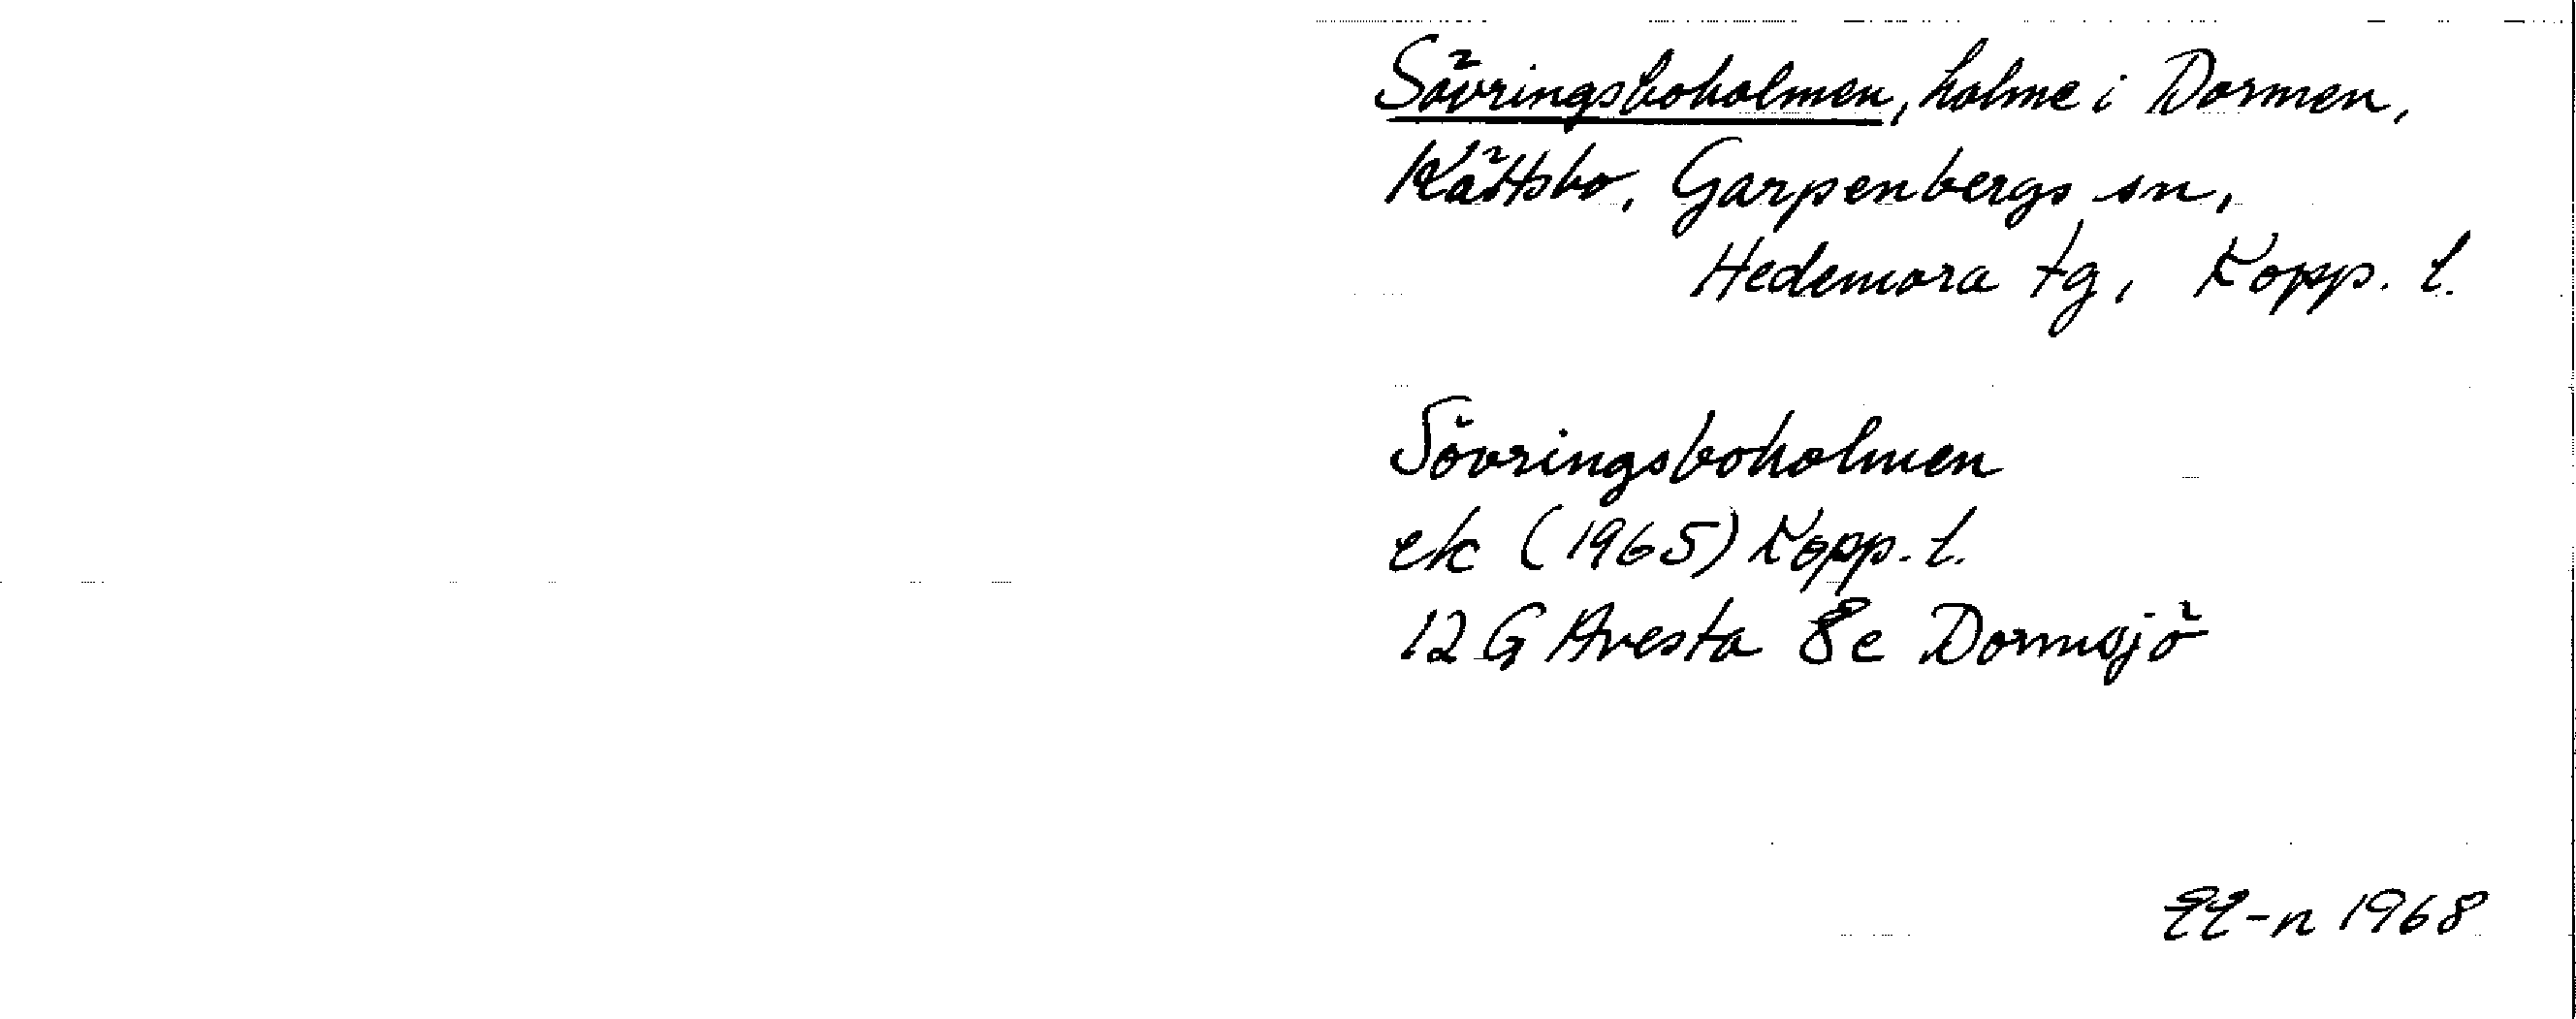 Sövringsboholmen, holme i Dormen,
Kättsbo, Garpenbergs sn,
Hedemora tg, Kopp. l.
Sövringsboholmen
ek (1965) Kopp. l.
12 G Avesta 8e Dormsjö
-n 1968